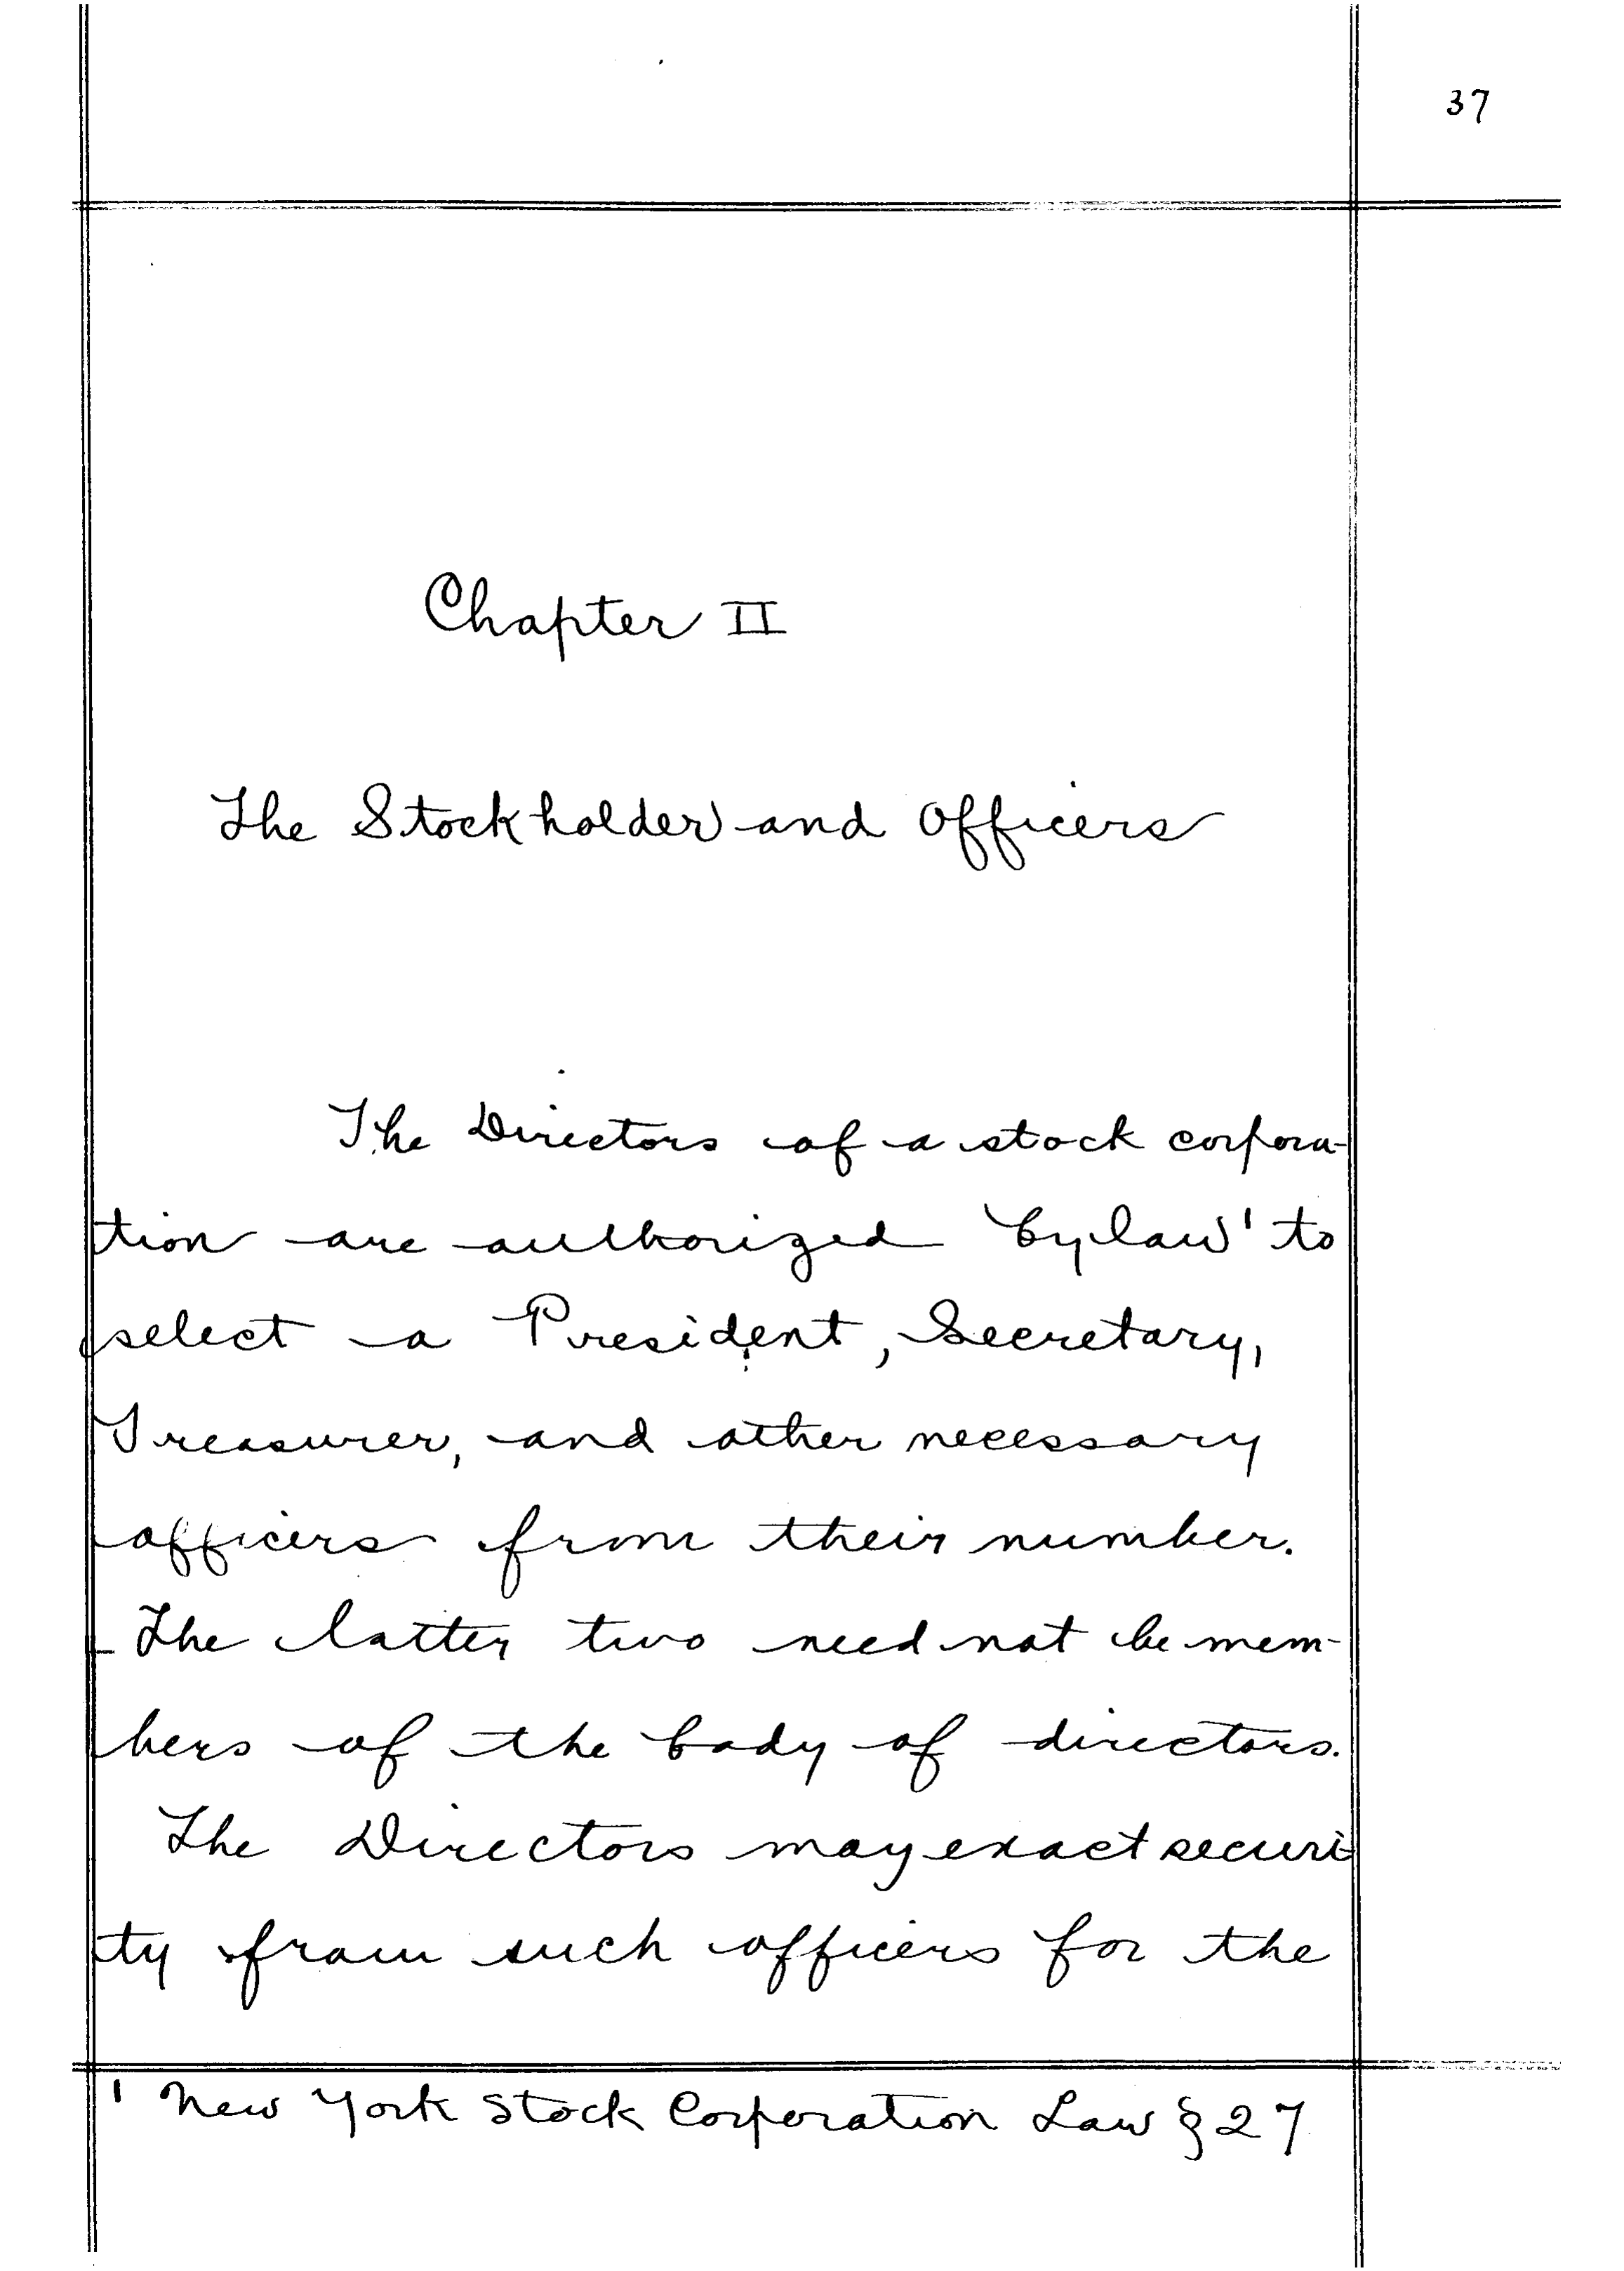 37
Chapter II
The Stockholder and Officers
The Directors of a stock corpora-
tion are authorized by law¹ to
select a President, Secretary,
Treasurer, and other necessary
officers from their number.
The latter two need not be mem-
bers of the body of directors.
The Directors may exact securi-
ty from such officers for the
¹ New York Stock Corporation Law § 27